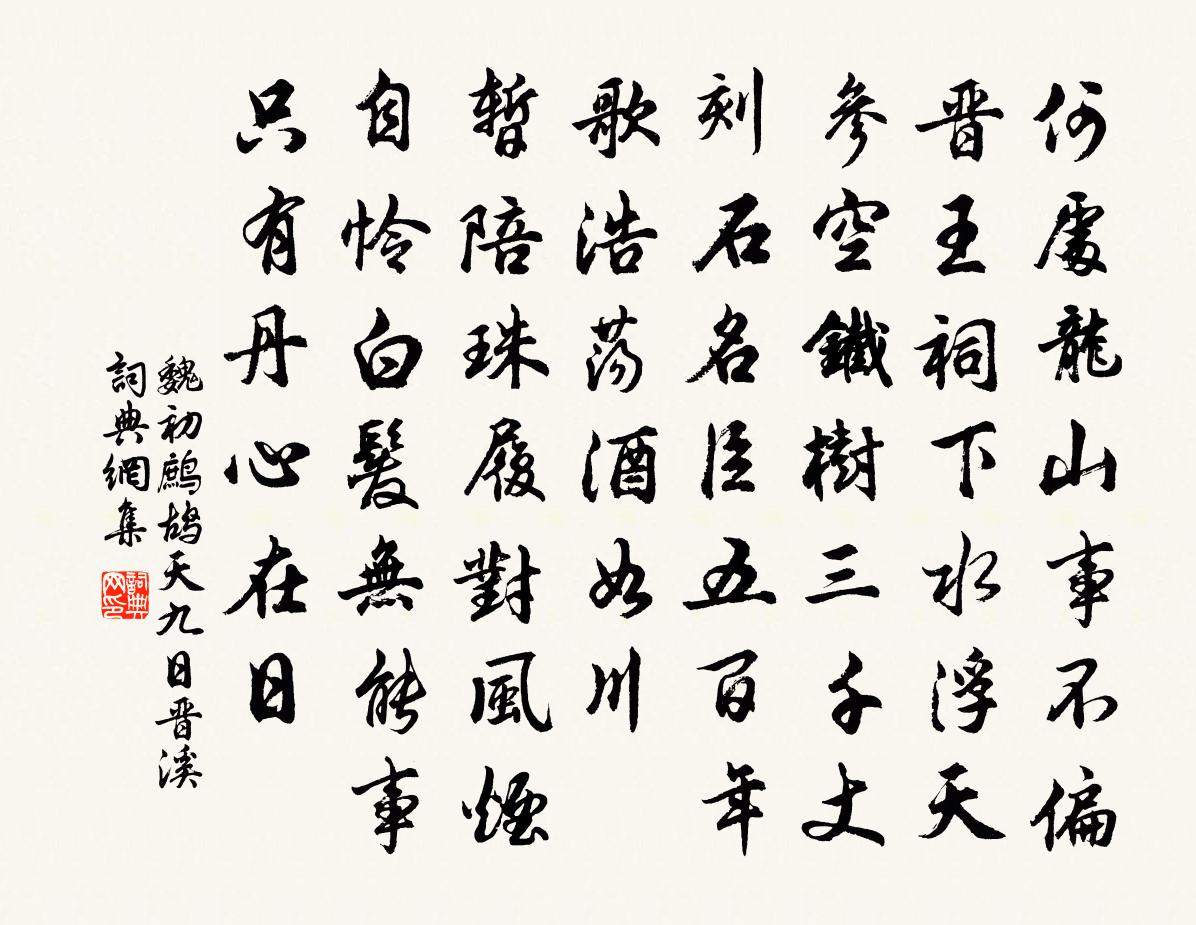 何處龍山事不偏
晋王祠下水浮天
參空鐵樹三千丈
刻石名臣五百年
歌浩荡酒如川
暫陪珠履對風煙
自怜白髮無能事
只有丹心在日
魏初鷓鴣天九日晋溪
詞典網集
詞典网印